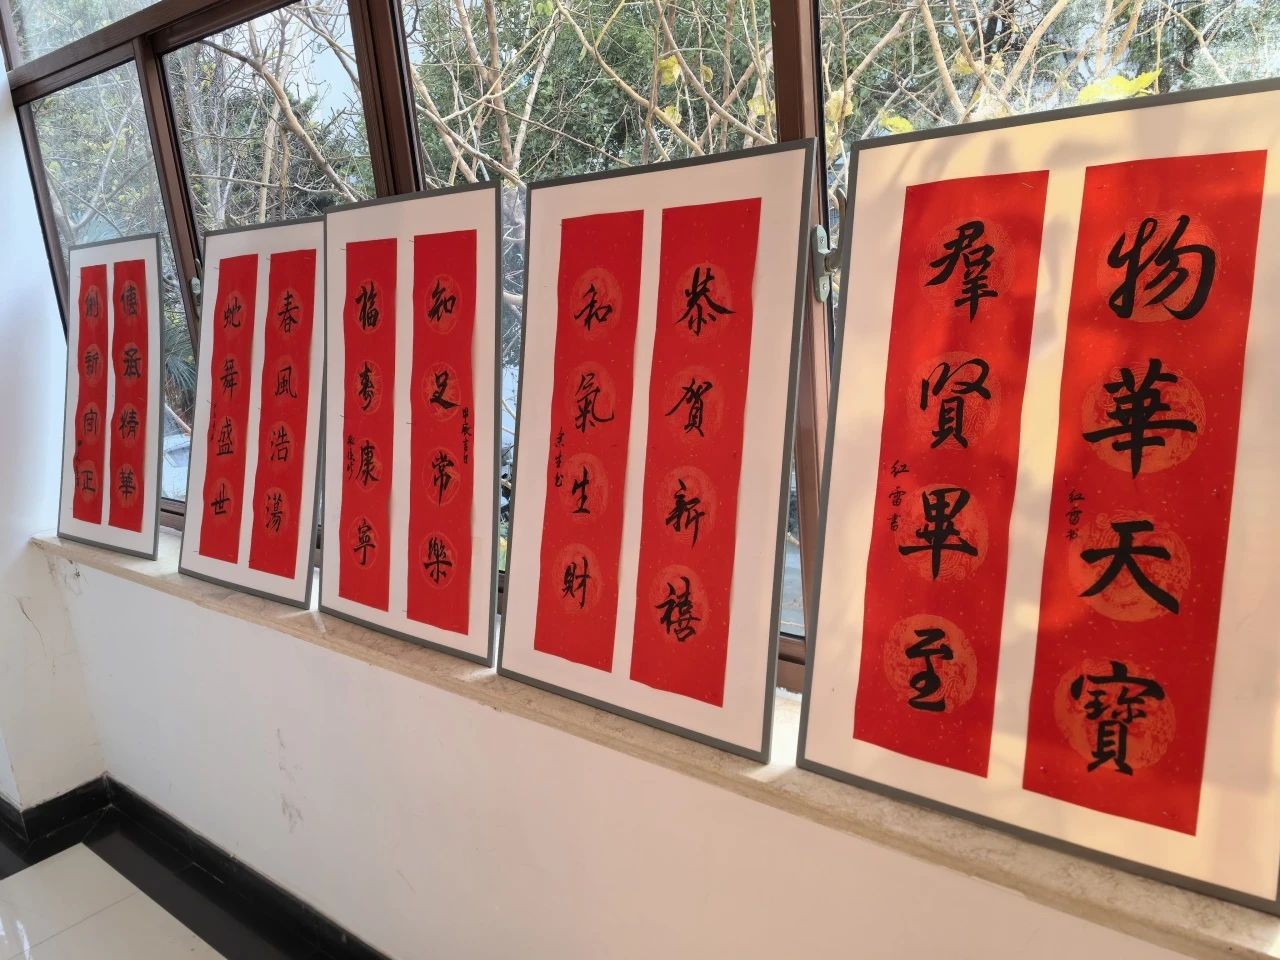 物華天寶
紅雷书
羣賢畢至
紅雷書
恭賀新禧
和氣生財
知足常樂
甲辰吉日
福壽康寧
春風浩蕩
蛇舞盛世
傳承精華
創新守正